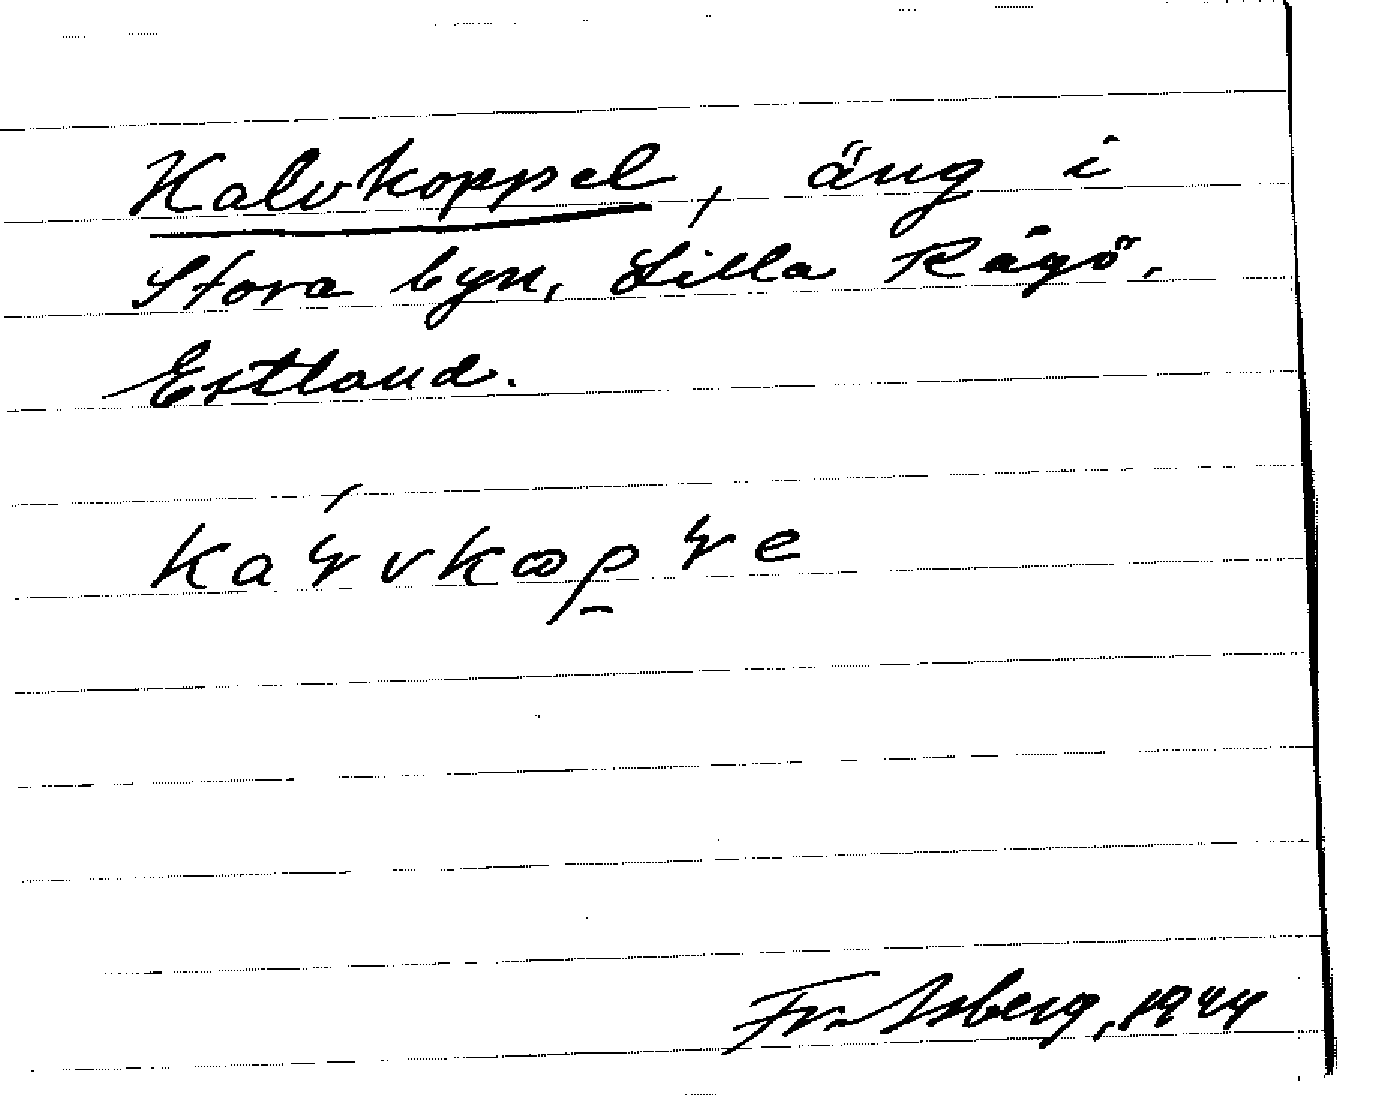 Kalvkoppel, äng i
Stora byn, Lilla Rågö,
Estland.
Fr. Isberg, 1944